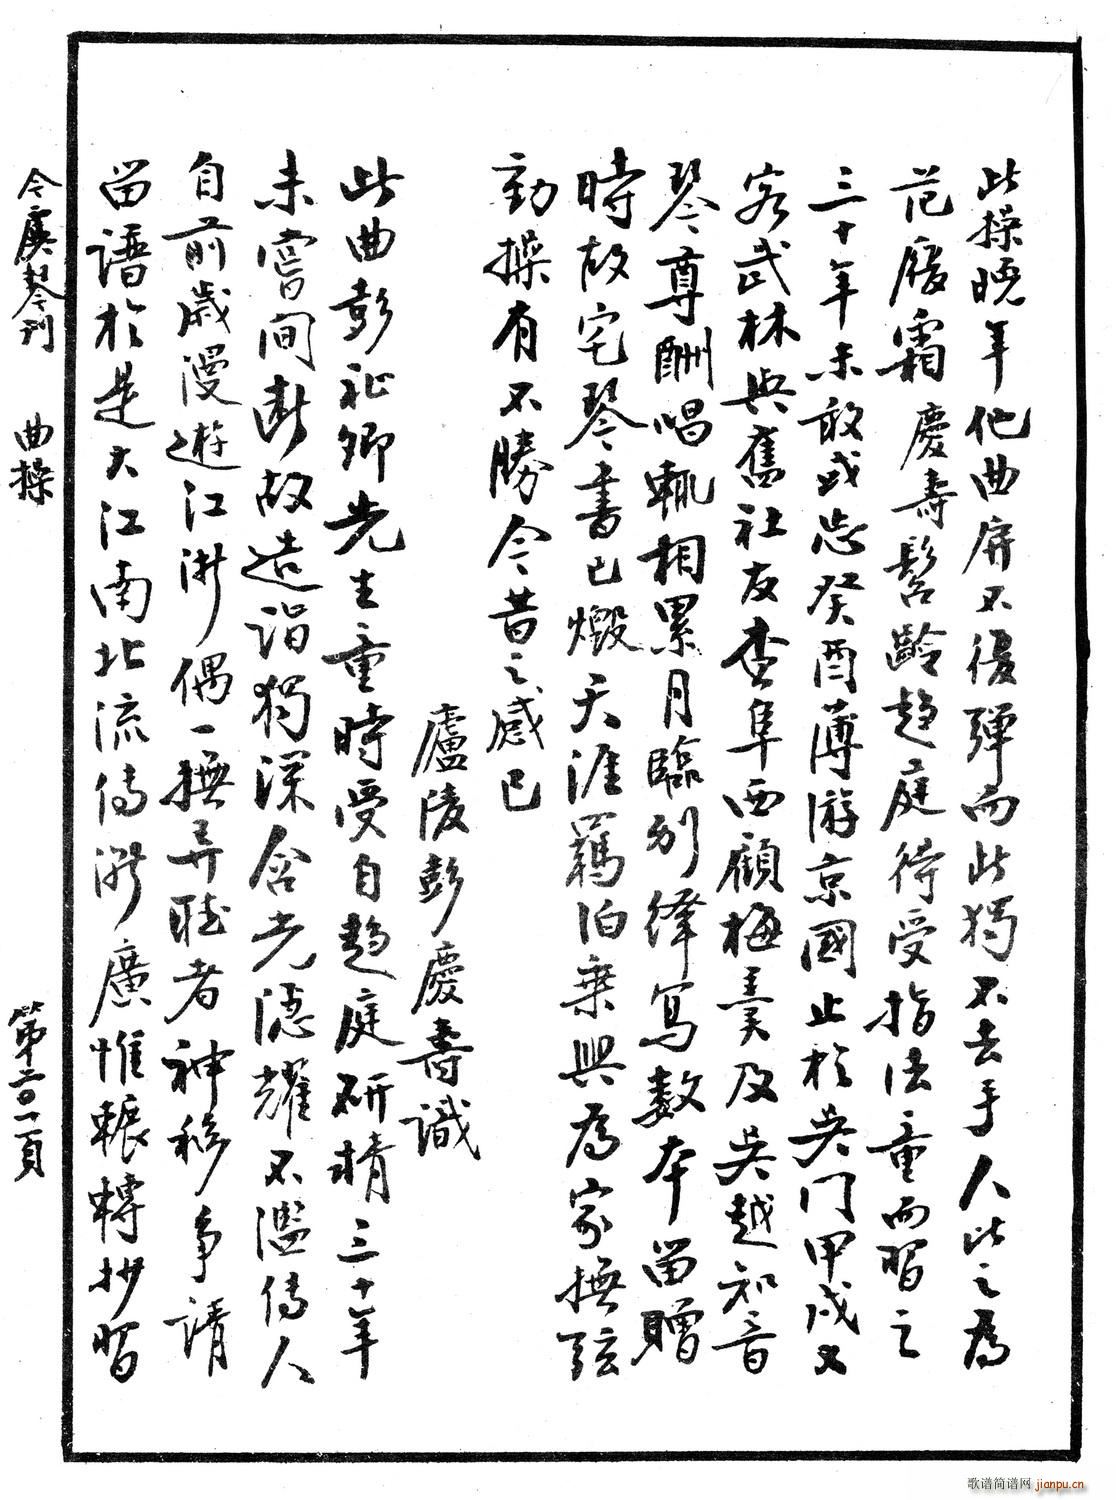 此操晚年他曲屏不復彈而此獨不去手人比之為
范履霜慶壽髫齡趨庭待受指法童而習之
三十年未敢或忘癸酉薄游京國止於吳門甲戌又
客武林與舊社友查阜西顧梅羹及吳越知音
琴尊酬唱輒相累月臨別繹寫數本留贈
時故宅琴書已燬天涯羈泊乘興為家撫弦
動操有不勝今昔之感已
廬陵彭慶壽識
此曲彭祉卿先生童時受自趨庭研精三十年
未嘗間斷故造詣獨深含光隱耀不濫傳人
自前歲漫遊江浙偶一撫弄聽者神移爭請
留譜於是大江南北流傳漸廣惟輾轉抄習
今虞琴刊 曲操 第二〇一頁
歌谱简谱网 jianpu.cn